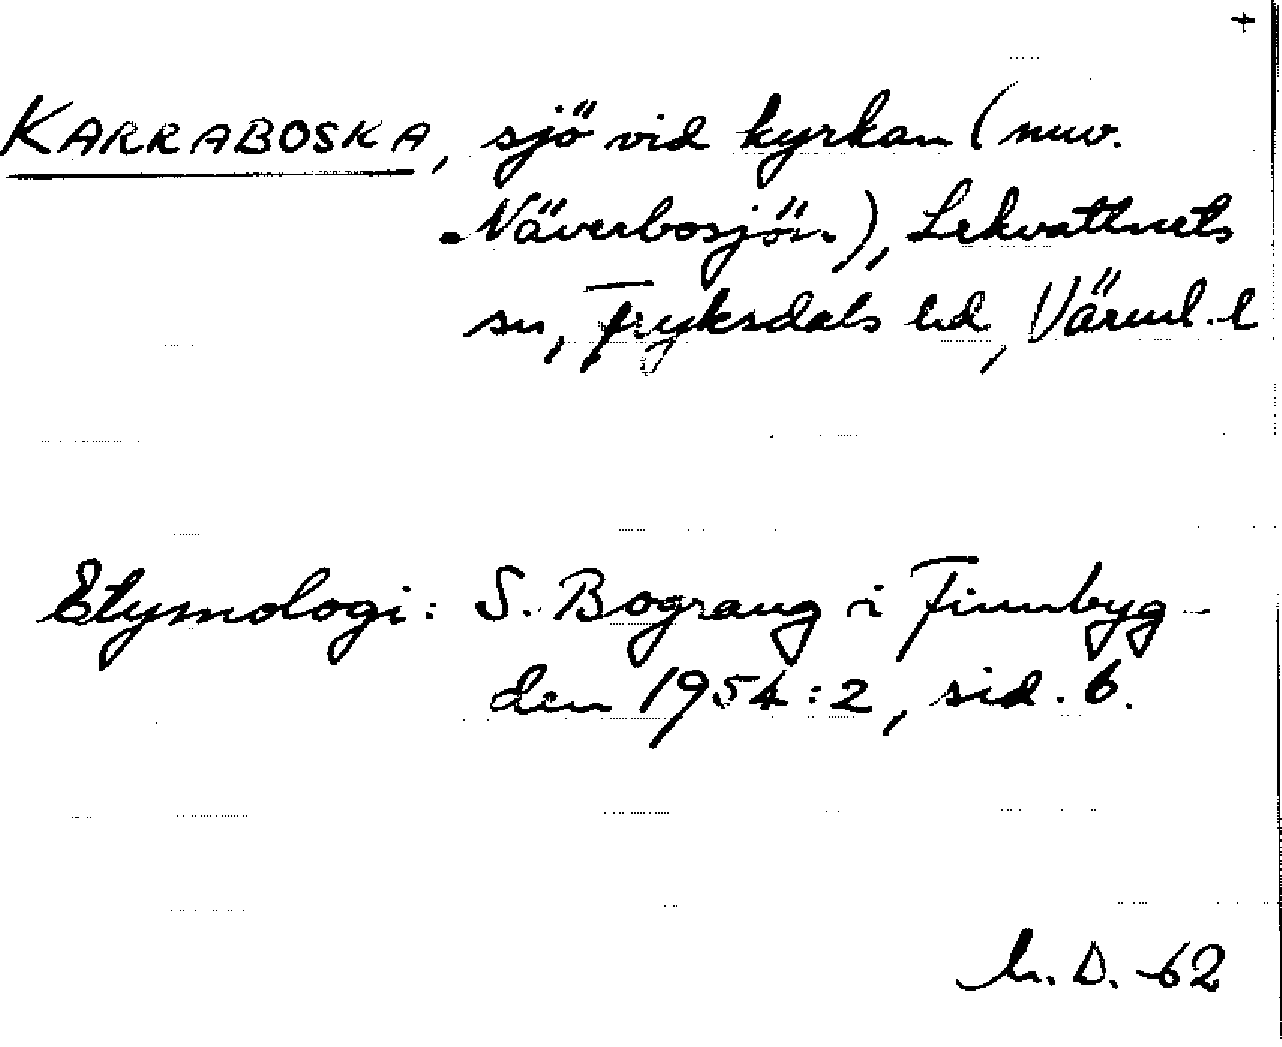 +
KARRABOSKA, sjö vid kyrkan (nuv.
Näverbosjön), Lekvattnets
sn, Fryksdals hd, Värml. l
Etymologi: S. Bograng i Finnbyg-
den 1954:2, sid. 6.
D. -62